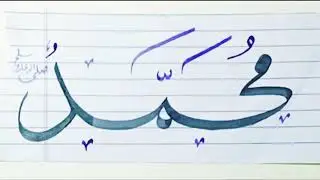 مُحَمَّدُ صلى الله عليه وسلم